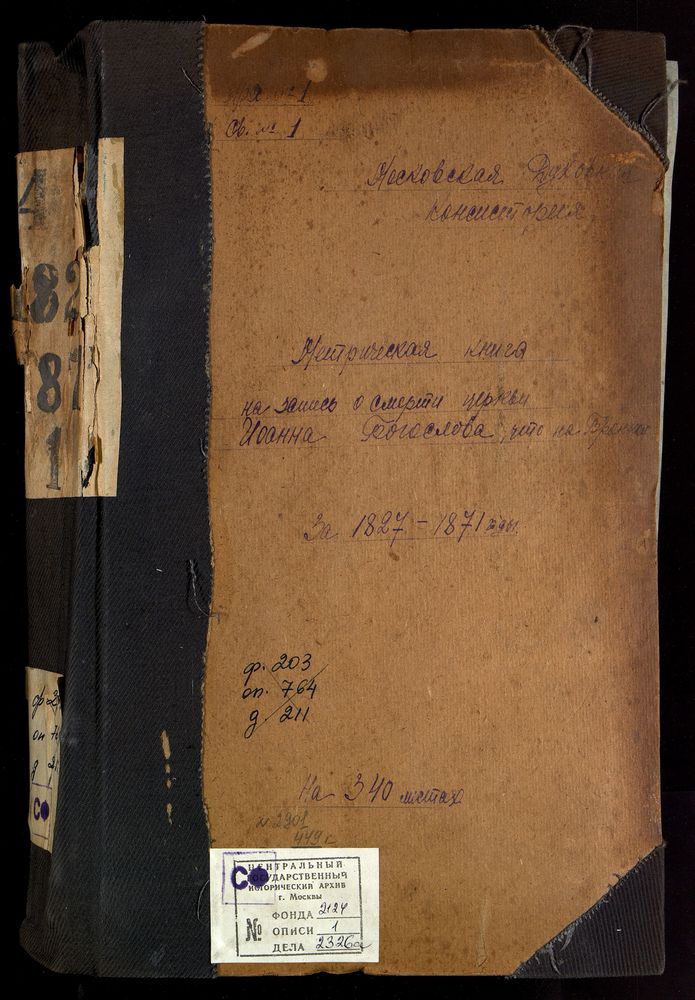 № 1
Св. № 1
Московская Духовная
консистория
Метрическая книга
на запись о смерти церкви
Иоанна Богослова, что на Бронной
За 1827-1871 годы.
ф. 203
оп. 764
д. 211
На 340 листах
ЦЕНТРАЛЬНЫЙ
ГОСУДАРСТВЕННЫЙ
ИСТОРИЧЕСКИЙ АРХИВ
г. Москвы
№
ФОНДА 2124
ОПИСИ 1
ДЕЛА 2326а
1
182
87
1
ф 2
оп 76
д 21
С